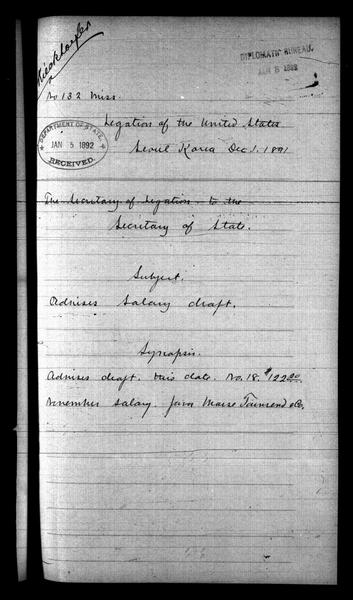 DIPLOMATIC BUREAU,
JAN 5 1892
No 132 Miss.
Legation of the United States
Seoul Korea Dec 1. 1891
DEPARTMENT OF STATE,
JAN 5 1892
RECEIVED.
The Secretary of Legation to the
Secretary of State.
Subject.
Advises Salary draft.
Synopsis.
Advises draft. this date. No. 18. $122.00
November salary. favor Morse Townsend & Co.